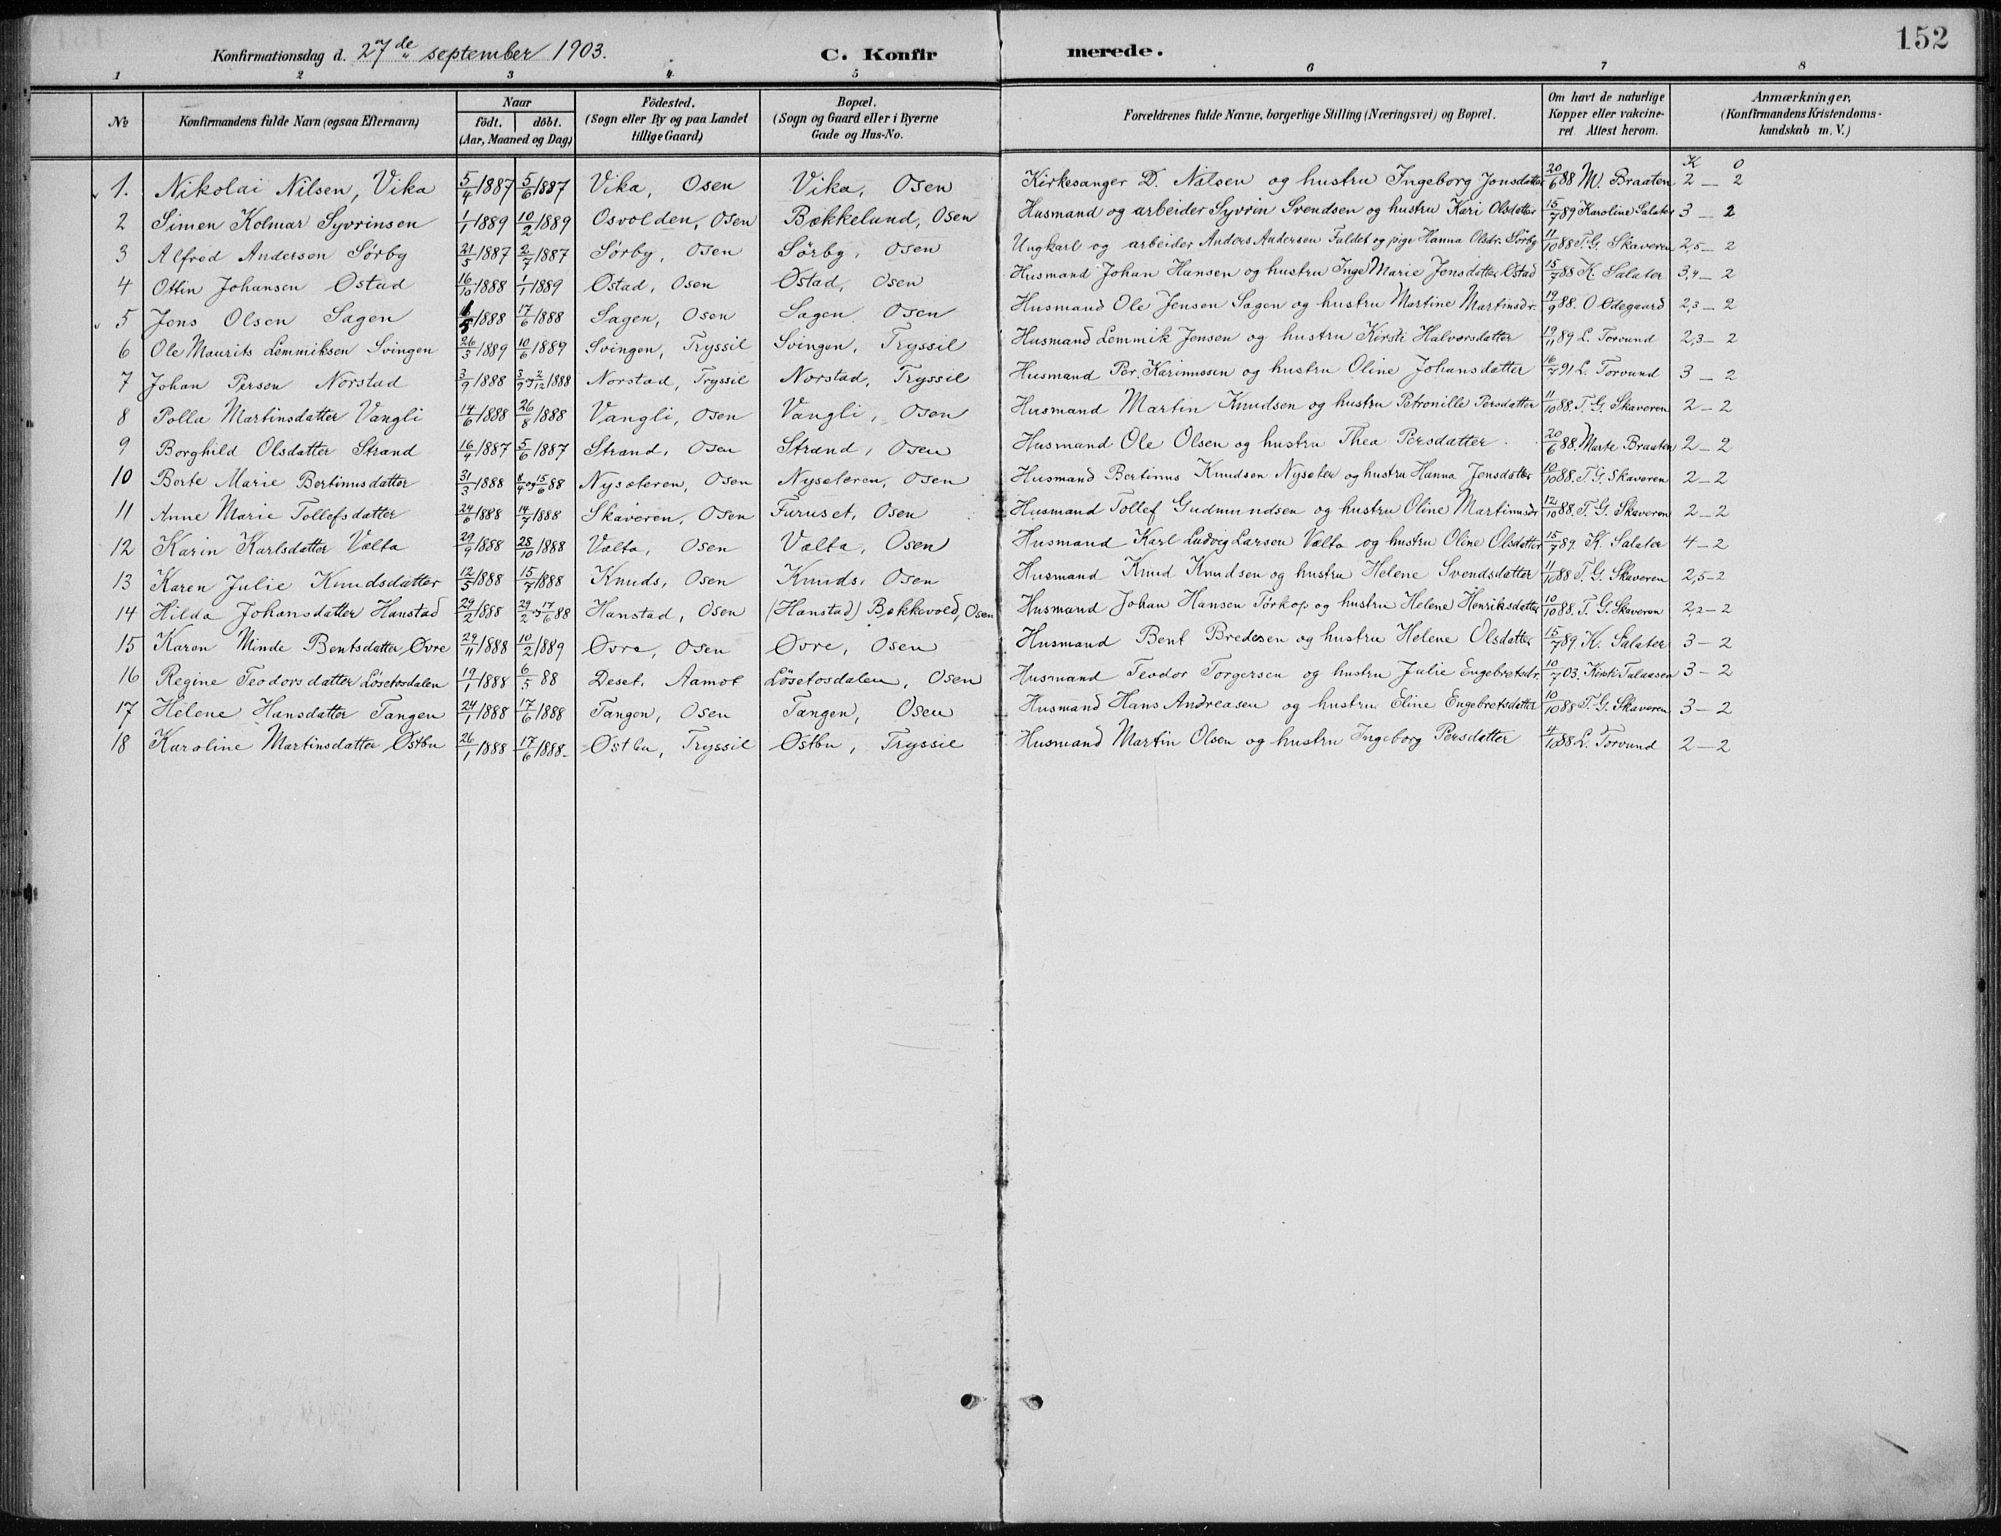 Konfirmationsdag d. 27de september 1903. C. Konfirmerede. 152
1 2 3 4. 5 6 7 8
№ Konfirmandens fulde Navn (ogsaa Efternavn) Naar født. døbt. (Aar, Maaned og Dag) Födested. (Sogn eller By og paa Landet tillige Gaard) Bopæl. (Sogn og Gaard eller i Byerne Gade og Hus-No. Forældrenes fulde Navne, borgerlige Stilling (Næringsvei) og Bopæl. Om havt de naturlige Kopper eller vakcineret. Attest herom. Anmærkninger. (Konfirmandens Kristendomskundskab m. V.)
K O
1. Nikolai Nilsen, Vika 5/4 1887 5/6 1887 Vika, Osen Vika, Osen Kirkesanger D. Nilsen og hustru Ingeborg Jonsdatter 20/6 88 M. Braaten 2 – 2
2 Simen Kolmar Syvrinsen 1/1 1889 10/2 1889 Osvolden, Osen Bækkelund, Osen Husmand og arbeider Syvrin Svendsen og hustru Kari Olsdatter 15/7 89 Karoline Salater 3 – 2
3 Alfred Andersen Sörby 21/5 1887 2/7 1887 Sörby, Osen Sörby, Osen Ungkarl og arbeider Anders Andersen Faldet og pige Hanna Olsdr. Sörby 11/10 88 T. G. Skaveren 2,5 – 2
4 Ottin Johansen Østad 16/10 1888 1/1 1889 Østad, Osen Østad, Osen Husmand Johan Hansen og hustru Inge Marie Jonsdatter Østad 15/7 88 K. Salater 3,4 – 2
5 Jens Olsen Sagen 1888 17/6 1888 Sagen, Osen Sagen, Osen Husmand Ole Jensen Sagen og hustru Martine Martinsdr. 19/9 88. O Ødegaard 2,3 – 2
6 Ole Maurits Lemmiksen Svingen 26/3 1889 10/6 1889 Svingen, Tryssil Svingen, Tryssil Husmand Lemmik Jensen og hustru Kirsti Halvorsdatter 19/11 89 L. Torvund 2,3 – 2
7 Johan Persen Norstad 3/9 1888 3/9 og 2/12 1888 Norstad, Tryssil Norstad, Tryssil Husmand Per. Karinussen og hustru Oline Johansdatter 16/7 91 L. Torvund 3 – 2
8 Polla Martinsdatter Vangli 14/6 1888 26/8 1888 Vangli, Osen Vangli, Osen Husmand Martin Knudsen og hustru Petronille Persdatter 11/10 88. T. G. Skaveren 2 – 2
9 Borghild Olsdatter Strand 16/4 1887 5/6 1887 Strand, Osen Strand, Osen Husmand Ole Olsen og hustru Thea Persdatter 20/6 88. Marte Braaten 2 – 2
10 Berte Marie Bertinusdatter 31/3 1888 8/4 og 15/6 88 Nyseteren, Osen Nyseteren, Osen Husmand Bertinus Knudsen Nyseter og hustru Hanna Jensdatter 10/10 88 T. G. Skaveren 2 – 2
11 Anne Marie Tollefsdatter 24/6 1888 14/7 1888 Skaveren, Osen Furuset, Osen Husmand Tollef Gudmundsen og hustru Oline Martinusdr 12/10 88. T. G. Skaveren 2 – 2
12 Karin Karlsdatter Vælta 29/9 1888 28/10 1888 Vælta, Osen Vælta, Osen Husmand Karl Ludvig Larsen Vælta og hustru Oline Olsdatter 15/7 89. K. Salater 4 – 2
13 Karen Julie Knudsdatter 12/5 1888 15/7 1888 Knuds, Osen Knuds, Osen Husmand Knud Knudsen og hustru Helene Svendsdatter 11/10 88 T. G. Skaveren 2,5 – 2
14 Hilda Johansdatter Hanstad 29/2 1888 29/2 og 17/6 88 Hanstad, Osen (Hanstad) Bækkevold, Osen Husmand Johan Hansen Törkop og hustru Helene Henriksdatter 10/10 88. T. G. Skaveren 2,2 – 2
15 Karen Minde Bentsdatter Øvre 29/11 1888 10/2 1889 Øvre, Osen Øvre, Osen Husmand Bent Bredesen og hustru Helene Olsdatter 15/7 89. K. Salater 3 – 2
16 Regine Teodorsdatter Lösetosdalen 19/1 1888 6/5 88 Deset, Aamot Lösetosdalen, Osen Husmand Teodor Torgersen og hustru Julie Engebretsdr. 10/7 03. 3 – 2
17 Helene Hansdatter Tangen 24/1 1888 17/6 1888 Tangen, Osen Tangen, Osen Husmand Hans Andreasen og hustru Eline Engebretsdatter 10/10 88 T. G. Skaveren 3 – 2
18 Karoline Martinsdatter Østbu 26/1 1888 17/6 1888 Østbu, Tryssil Østbu, Tryssil Husmand Martin Olsen og hustru Ingeborg Persdatter 4/10 88. L. Torvund 2 – 2